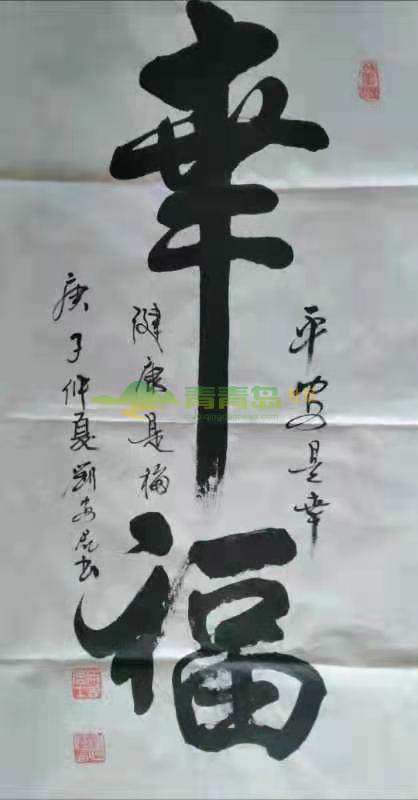 幸福
平安是幸
健康是福
庚子仲夏劉安昆书
青青岛